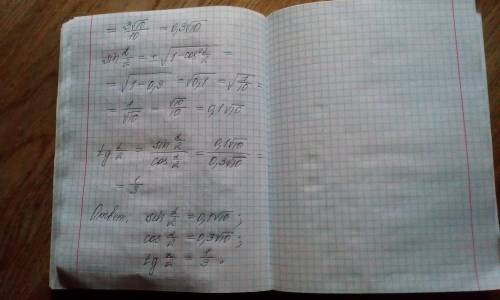 = 3√10/10 = 0,3√10
sin α/2 = +√(1−cos² α/2) =
= √(1−0,9) = √0,1 = √(1/10) =
= 1/√10 = √10/10 = 0,1√10
tg α/2 = (sin α/2)/(cos α/2) = 0,1√10/0,3√10 =
= 1/3
Ответ: sin α/2 = 0,1√10;
cos α/2 = 0,3√10;
tg α/2 = 1/3.